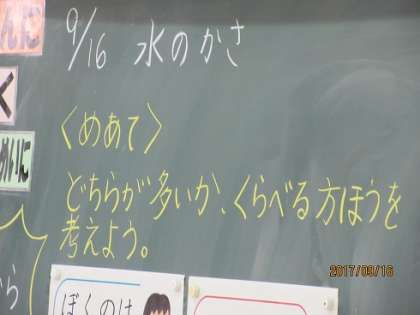 んに
9/16 水のかさ
く
〈めあて〉
めいに
どちらが多いか、くらべる方ほうを
考えよう。
ら
ぼくのは
2017/09/16